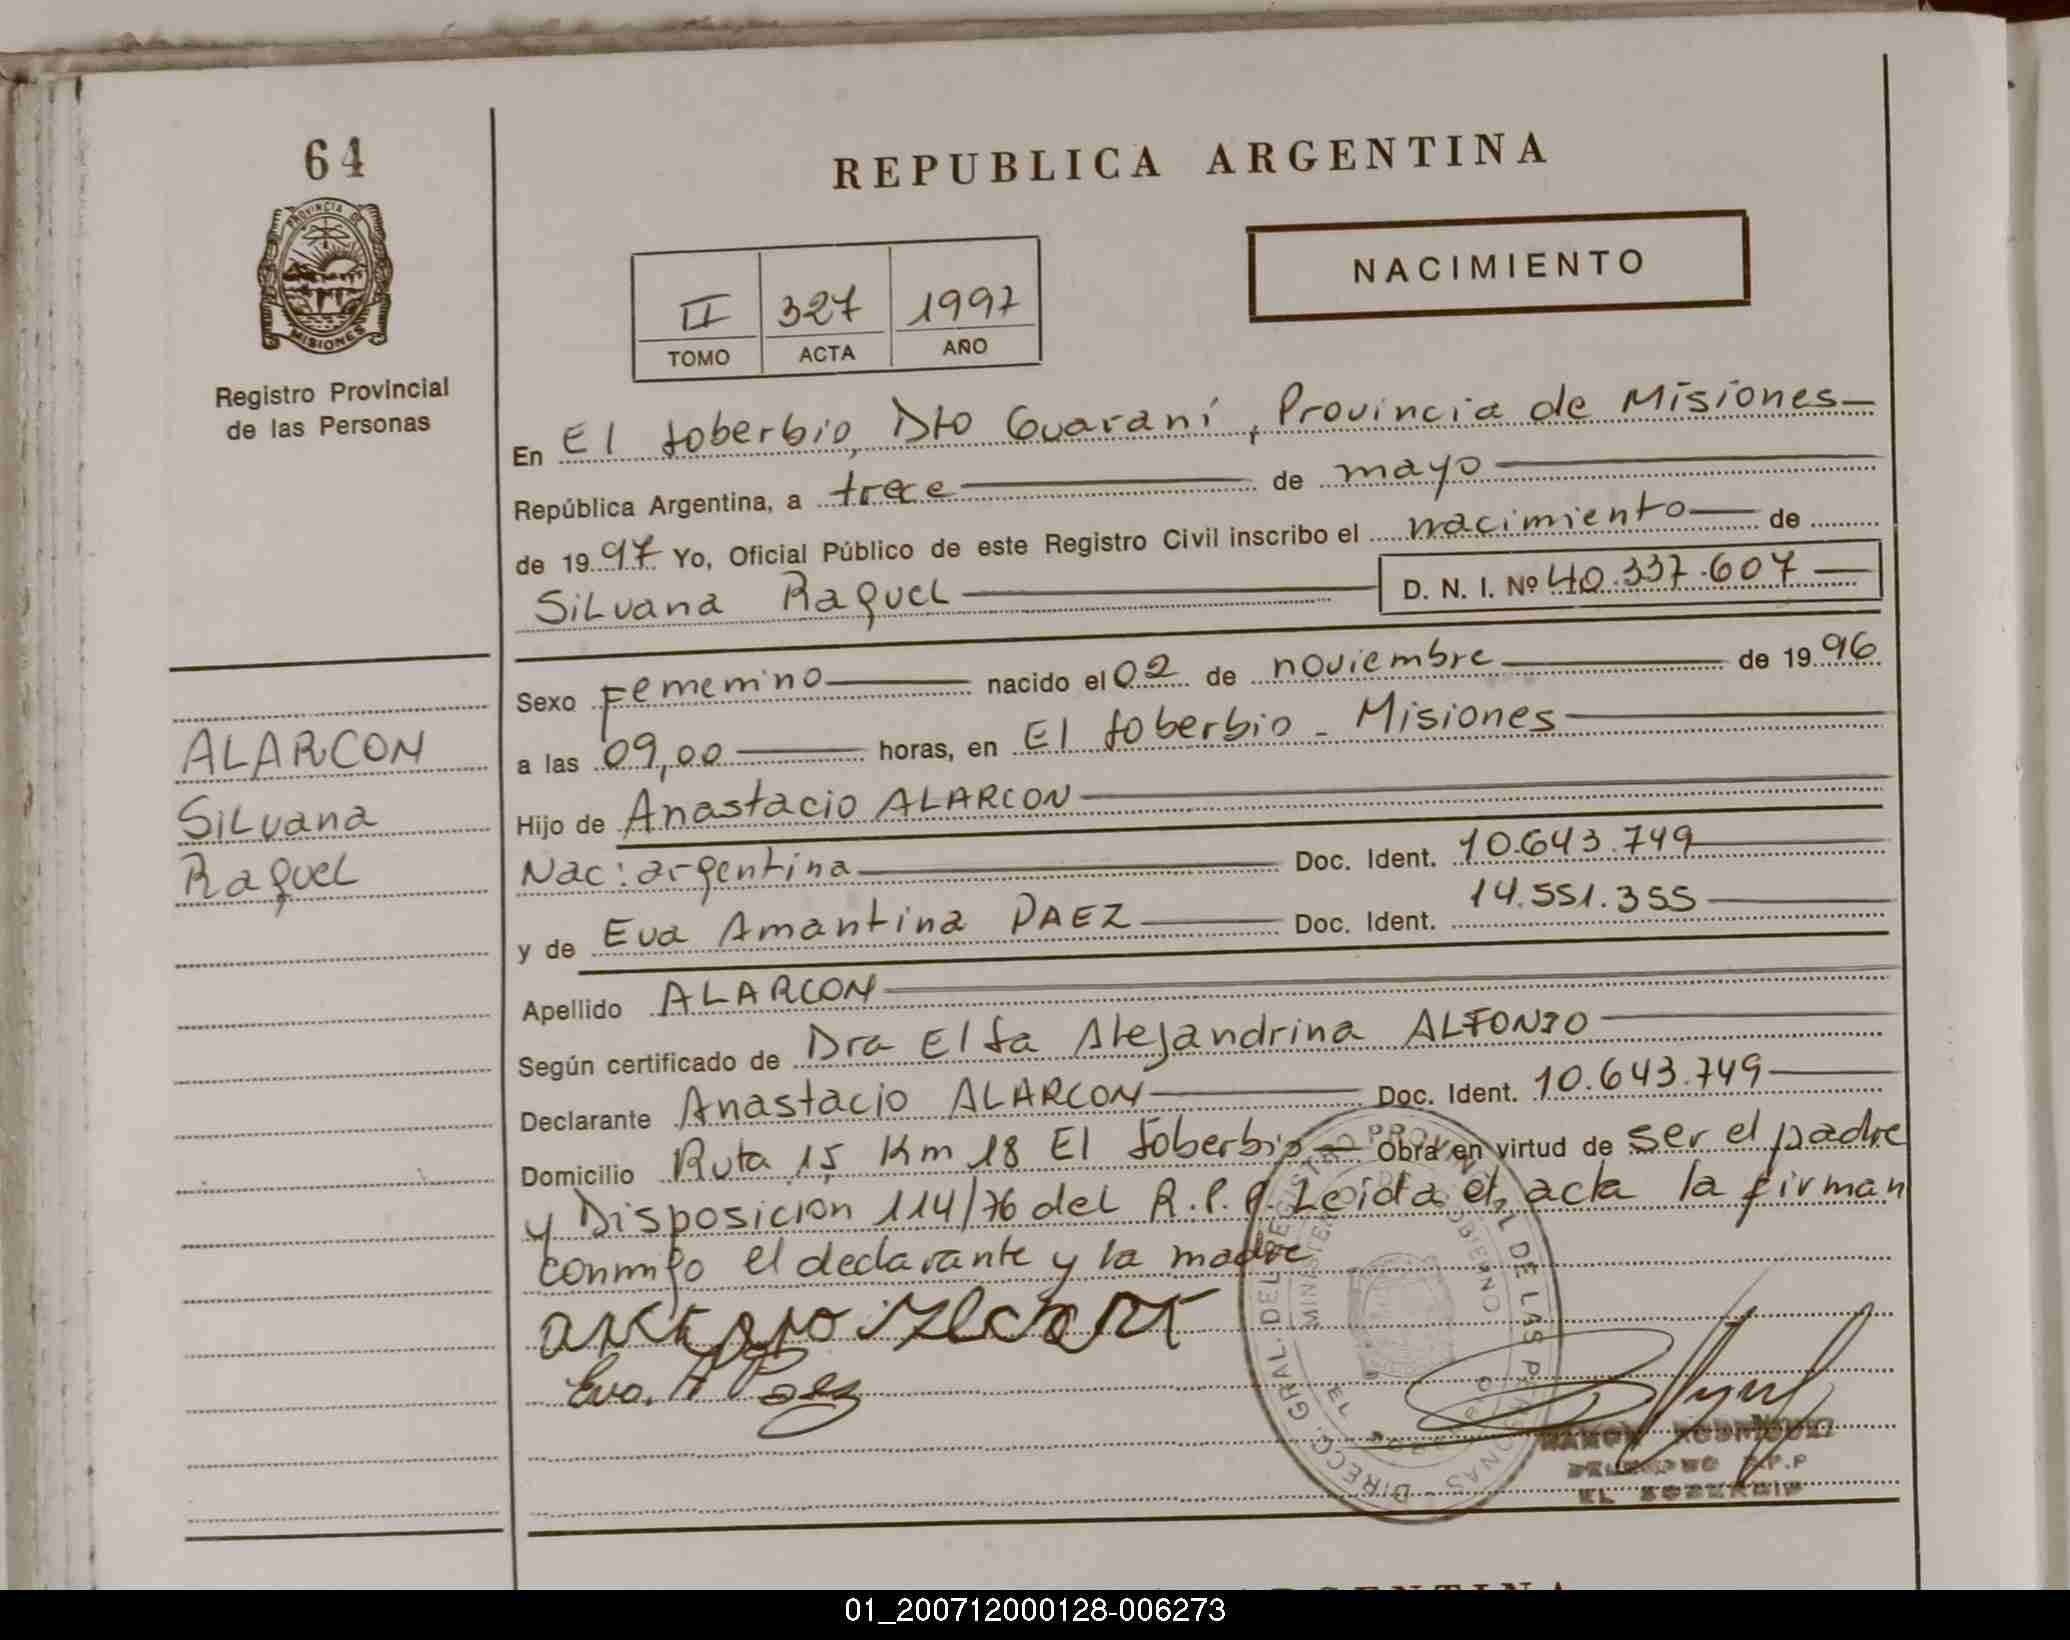 64
REPUBLICA ARGENTINA
PROVINCIA DE
MISIONES
NACIMIENTO
II 327 1997
TOMO ACTA AÑO
Registro Provincial
de las Personas
En El Soberbio, Dto Guaraní, Provincia de Misiones
República Argentina, a trece de mayo
de 1997 Yo, Oficial Público de este Registro Civil inscribo el nacimiento de
Silvana Raquel D. N. I. Nº 40.337.607
Sexo Femenino nacido el 02 de noviembre de 1996
a las 09,00 horas, en El Soberbio - Misiones
Hijo de Anastacio ALARCON
Nac: argentina Doc. Ident. 10.643.749
y de Eva Amantina PAEZ Doc. Ident. 14.551.355
Apellido ALARCON
Según certificado de Dra Elsa Alejandrina ALFONZO
Declarante Anastacio ALARCON Doc. Ident. 10.643.749
Domicilio Ruta 15, Km 18 El Soberbio Obra en virtud de ser el padre
y Disposicion 114/76 del R.P.P. Leida el acta la firman
conmigo el declarante y la madre
ALARCON
Silvana
Raquel
Eva. A Paez
DIRECC. GRAL. DEL REGISTRO PROVINCIAL DE LAS PERSONAS
RAMON RODRIGUEZ
DELEGADO R.P.P
EL SOBERBIO
ARGENTINA
01_200712000128-006273